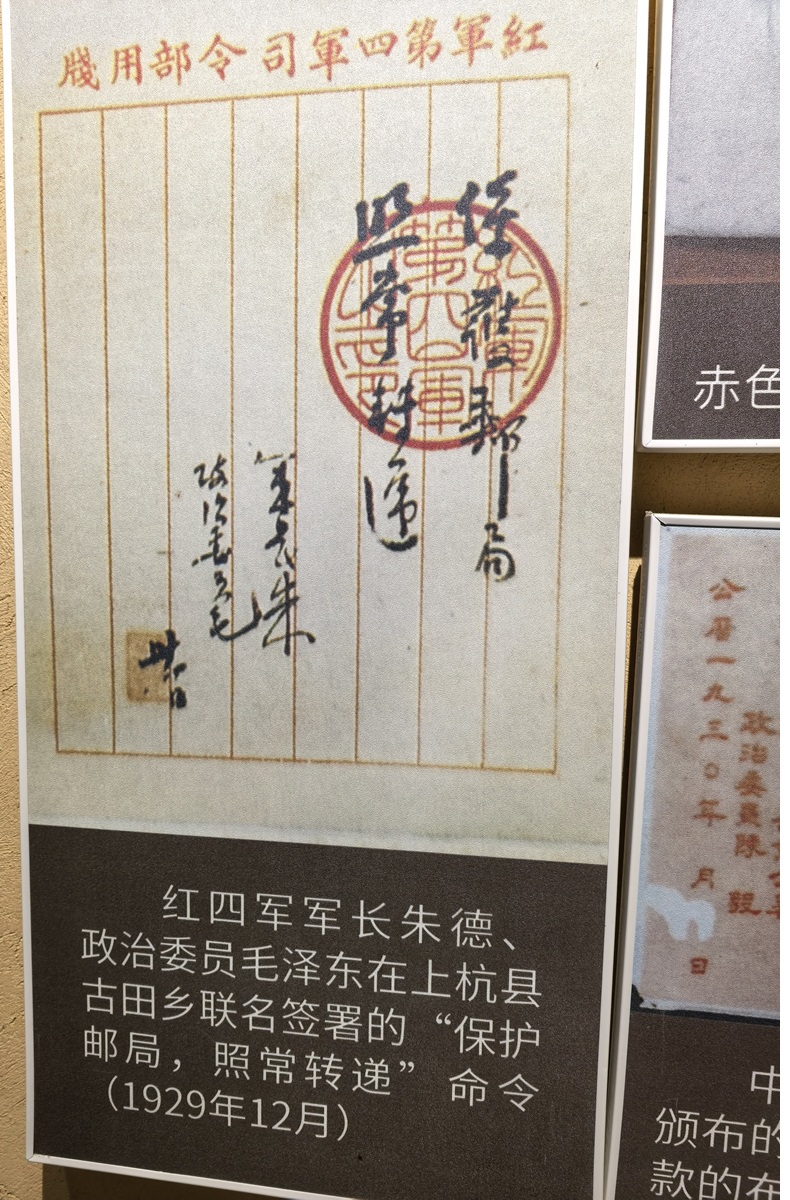 紅軍第四軍司令部用牋
保護郵局
照常轉遞
軍長朱
政治委員毛
红四军军长朱德、
政治委员毛泽东在上杭县
古田乡联名签署的“保护
邮局，照常转递”命令
（1929年12月）
赤色
政治委員陳毅
公曆一九三〇年 月 日
中
颁布的
款的在